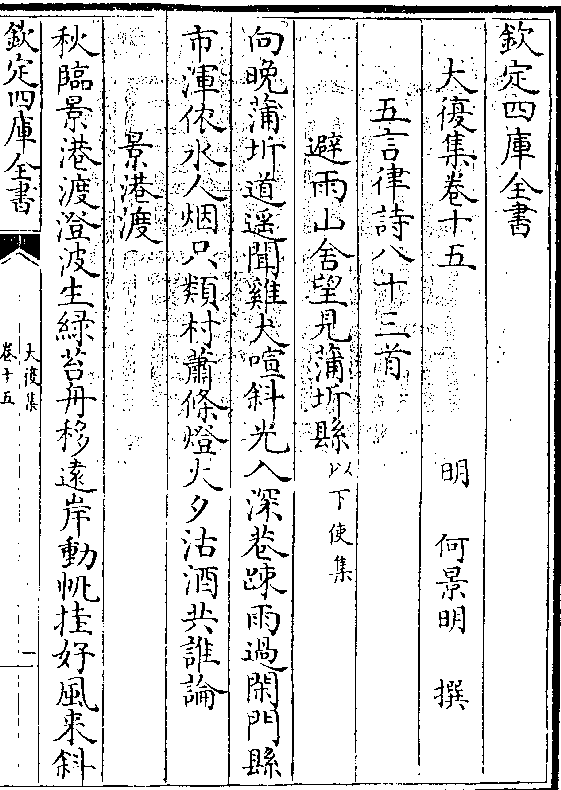 欽定四庫全書
大復集卷十五
明 何景明 撰
五言律詩八十三首
避雨山舍望見蒲圻縣以下使集
向晚蒲圻道遥聞雞犬喧斜光入深巷踈雨過閑門縣
市渾依水人烟只類村蕭條燈火夕沽酒共誰論
景港渡
秋臨景港渡澄波生緑苔舟移遠岸動帆挂好風来斜
欽定四庫全書
大復集
卷十五
一